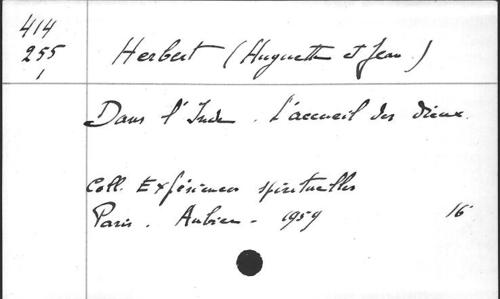 414
255
1
Herbert (Huguette et Jean.)
Dans l'Inde. L'accueil des dieux.
Coll. Expériences spirituelles
Paris. Aubier - 1959 16°